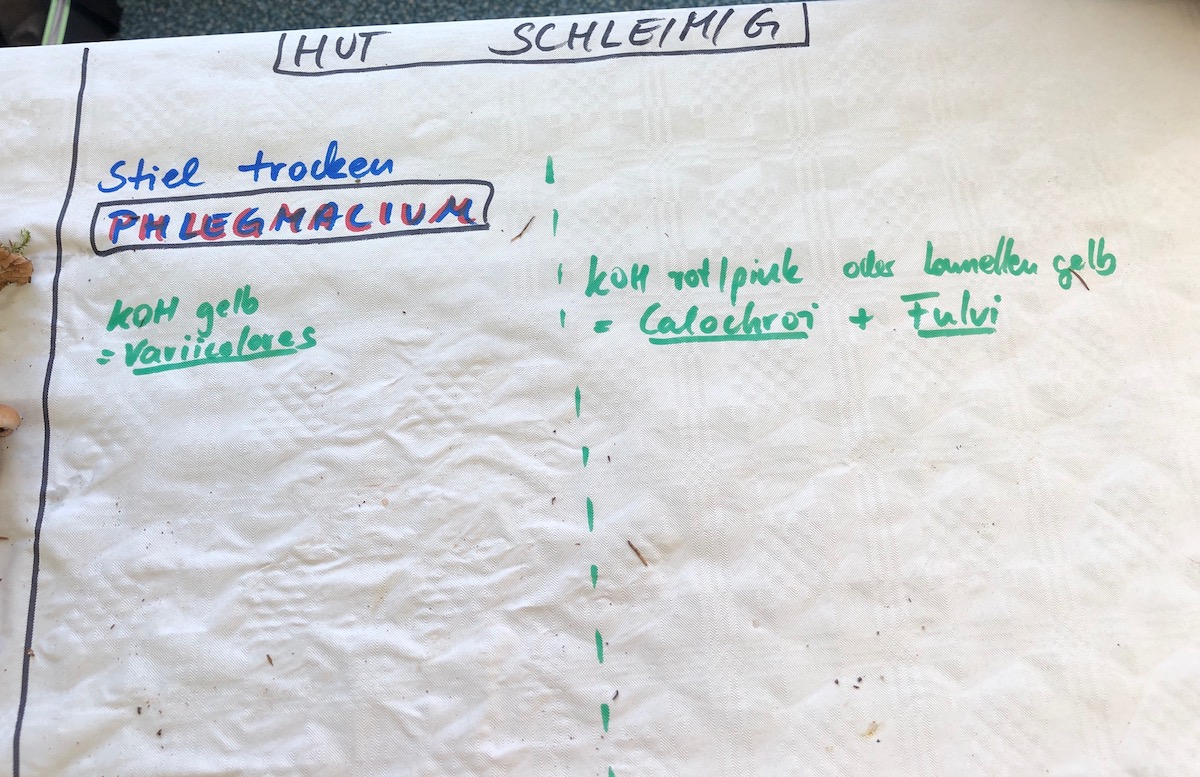 HUT SCHLEIMIG
Stiel trocken
PHLEGMACIUM
KOH gelb
= Variicolores
KOH rot/pink oder Lamellen gelb
= Calochroi + Fulvi